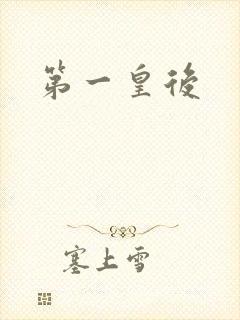 第一皇後
塞上雪